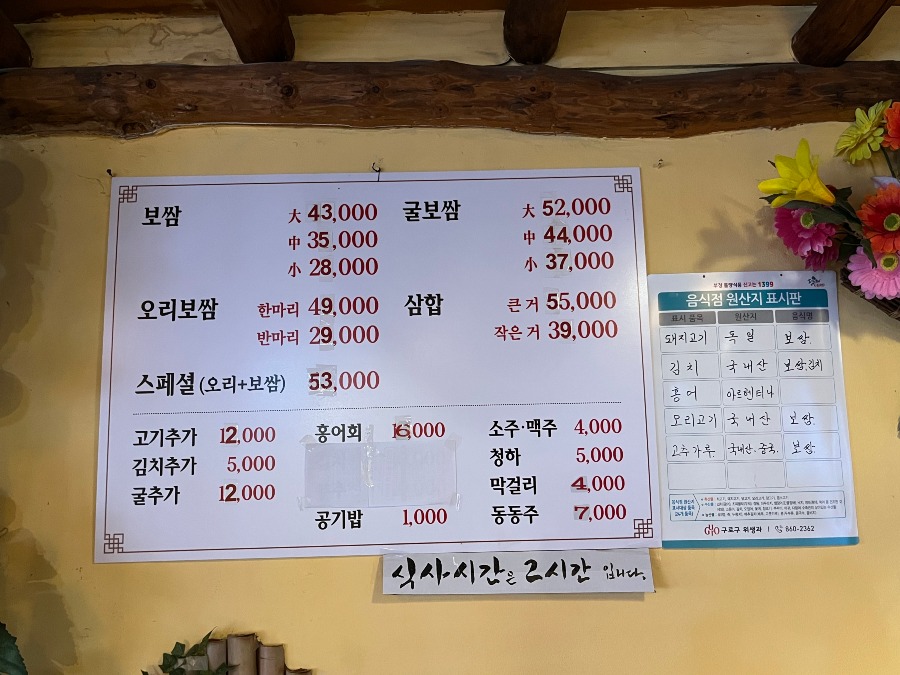 보쌈 大 43,000
中 35,000
小 28,000
굴보쌈 大 52,000
中 44,000
小 37,000
오리보쌈 한마리 49,000
반마리 29,000
삼합 큰거 55,000
작은거 39,000
스페셜 (오리+보쌈) 53,000
고기추가 12,000
김치추가 5,000
굴추가 12,000
홍어회 16,000
공기밥 1,000
소주·맥주 4,000
청하 5,000
막걸리 4,000
동동주 7,000
식사시간은 2시간 입니다.
부정·불량식품 신고는 1399
음식점 원산지 표시판
표시 품목 원산지 음식명
돼지고기 독일 보쌈.
김치 국내산 보쌈.김치
홍어 아르헨티나
오리고기 국내산 보쌈.
고추가루. 국내산.중국. 보쌈.
음식점 원산지
표시대상 품목
구로구 위생과 860-2362